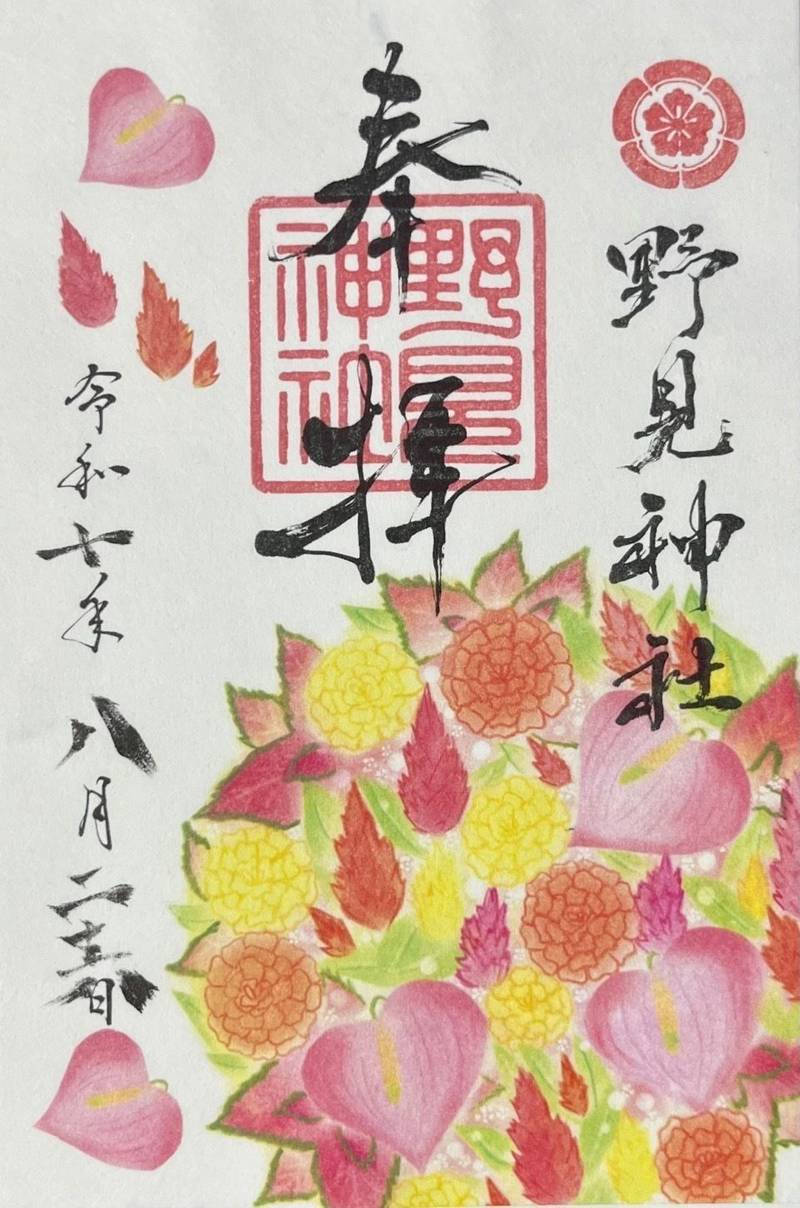 野見神社
奉拝
野見神社
令和七年八月二十六日